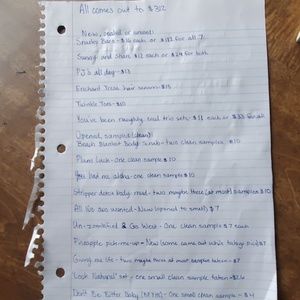 All comes out to $312
New, sealed or unused:
Snarky Bars - $16 each or $112 for all 7
Sunny and share $12 each or $24 for both
PJ's all day - $13
Enchant hair serum - $15
Twinkle Toes - $10
You've been naughty trial trio sets - $11 each or $33 for all
Opened, samples (clean)
Beach Blanket Body Scrub - two clean samples $10
Plans luck - one clean sample $10
You had me aloha - one clean sample $10
Stripper detox body mud - two maybe three (at most) samples $10
All I've ever wanted - New (opened to smell) $7
Un-zomlified & Go West - One clean sample $7 each
Pineapple pick-me-up - New (some came out while taking pic) $7
Giving me life - two maybe three at most samples taken - $7
Look Natural set - one small clean sample taken - $26
Don't Be Bitter Baby (NYHC) - One small clean sample - $12